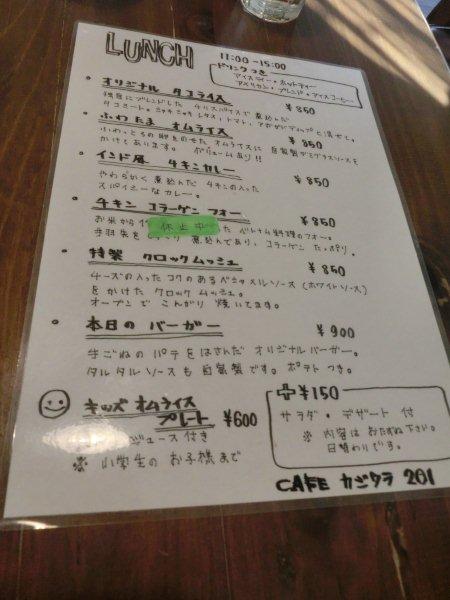 LUNCH
11:00-15:00
ドリンクつき
アイスティー・ホットティー
アメリカン・ブレンド・アイスコーヒー
オリジナル タコライス ¥850
独自にブレンドした チリスパイスで 煮込んだ
タコミート。シャキシャキ レタス、トマト、アボカドディップと 混ぜて。
ふわたま オムライス ¥850
ふわっとろの卵をのせた オムライスに 自家製デミグラスソースを
かけてあります。 ボリュームあり!!
インド風 チキンカレー ¥850
やわらかく 煮込んだ チキンの入った
スパイシーなカレー。
チキン コラーゲン フォー ¥850
お米から 休止中 ベトナム料理のフォー。
手羽先を じっくり 煮込んであり、コラーゲン たっぷり。
特製 クロックムッシュ ¥850
チーズの入った コクのある ベシャメルソース (ホワイトソース)
をかけた クロックムッシュ。
オーブンで こんがり 焼いてます。
本日の バーガー ¥900
手ごねの パテ をはさんだ オリジナルバーガー。
タルタルソースも 自家製です。 ポテトつき。
キッズ オムライス
プレート ¥600
ジュース付き
※ 小学生の お子様まで
+¥150
サラダ・デザート 付
※ 内容は おたずね下さい。
日替わりです。
CAFE カジクラ 201